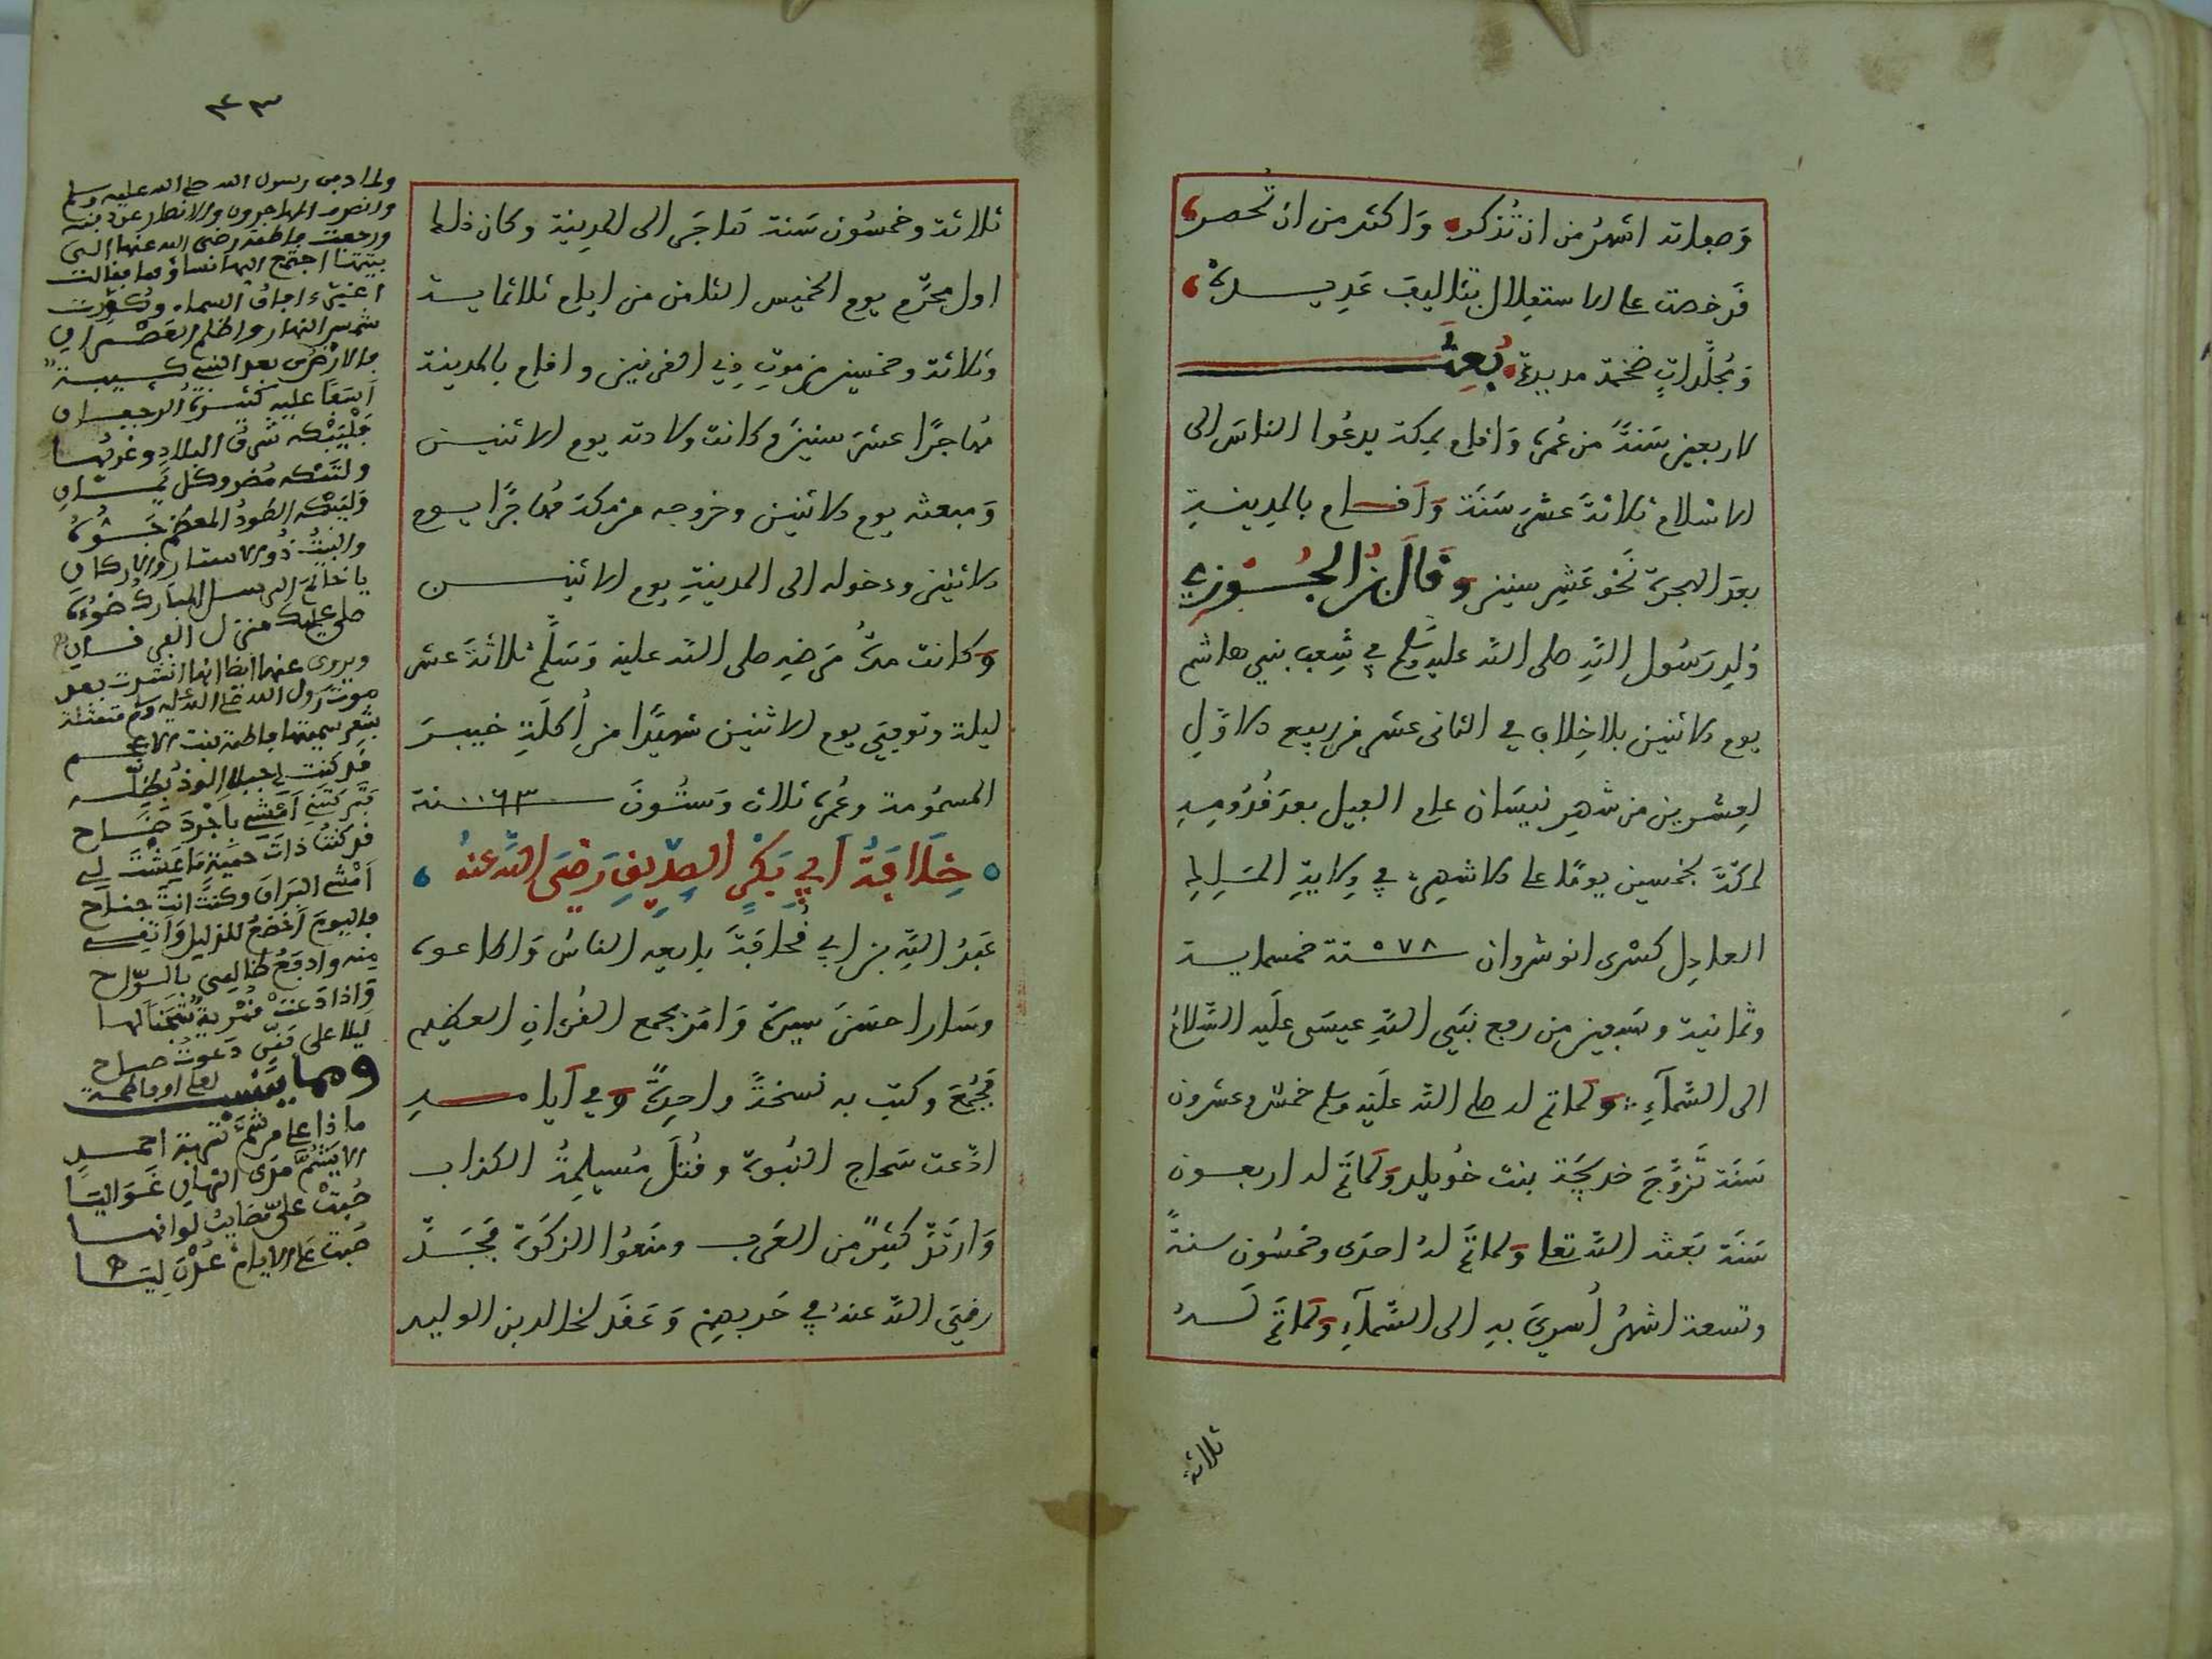 وصفاته اشهر من ان تُذكر، وَاكثر من ان تُحصر،
قد خصت على الاستقلال بتآليف عَديدة،
وَمُجلَّداتٍ ضخمة مديدة، بُعِثَ
لاربعين سَنةً من عُمره وَاقام بمكة يدعُوا الناسَ الى
الاسْلام ثلاثةَ عشر سَنَة وَاقام بالمدينةِ
بعدَ الهجرة نَحْو عَشرِ سنين وقال بن الجُوزي
وُلِد رَسُولُ اللهِ صلى الله عليه وَسَلم في شِعب بني هاشم
يوم الاثنين بلا خِلاف في الثانى عشر من ربيع الاوّلِ
لعشرين من شهر نيسَان عام الفيل بعد قدُومِهِ
لمكةَ بخمسين يومًا على الاشهر، في ولايةِ المَلِكِ
العادِل كسْرى انوشروان سنة ٥٧٨ خمسماية
وثمانية وسَبعين من رفع نبي اللهِ عيسَى علَيه السَّلامُ
الى السَّمآءِ، ولما تم له صلى الله علَيْهِ وسلم خمسٌ وعشرون
سَنَة تزوَّجَ خديجَة بنت خُويلد ولماتَم له اربعون
سَنَة بَعثه الله تعا ولماتَم لهُ احدَى وخمسُون سنةً
وتسعة اشهرُ اُسرِيَ بهِ الى السَّمآءِ ولماتَم لَهُ
ثلاثة
٣٤٣
ثلاثة وخمسُون سَنة هَاجَر الى المدينة وكان ذلك
اول محرَّم يوم الخميس الثامن من ايام ثلاثماية
وثلاثة وخمسين من موتِ ذِي القرنين واقام بالمدينة
مُهاجرًا عشرَ سنين وكانت ولادته يوم الاثنين
وَمبعثه يوم الاثنين وخروجه من مكة مُهاجرًا يوم
الاثنين ودخوله الى المدينةِ يوم الاثنين
وكانت مدّةُ مَرضِه صلى الله عليه وَسَلَّم ثلاثةَ عشر
ليلة وتوفِيَ يوم الاثنين شهيدًا من اُكلَةِ خيبرَ
المسمُومة وعُمره ثلاث وَستُونَ ٦٣ سنة
خِلَافَةُ اَبي بَكْرٍ الصِدِّيقِ رَضِيَ اللهُ عنهُ
عَبدُ اللهِ بن ابي قُحافَةَ بايعه الناسُ وَاطاعوه
وسَار احسَنَ سيرَة وَامَر بجمع القرانِ العظيم
فجُمِعَ وكتب به نسخةً واحِدَةً وفي اَيامهِ
ادَّعت سَجاح النبُوة وقتلَ مُسيلِمةُ الكذاب
وَارتَدَّ كثيرٌ من العَرب ومنعُوا الزكوَة فجَدَّ
رضِيَ الله عنهُ في حَربهِم وَعَقَد لخالد بن الوليد
ولما دفن رسول الله صلى الله عليه وسلم
وانصرف المهاجرون والانصار عن دفنه
ورجعت فاطمة رضى الله عنها الى
بيتها اجتمع اليها نساؤها فقالت
اغبرَّ افاقُ السماء وكُوِّرَت
شمس النهار واظلم العَصْران
فالارْض من بعد النبي كئيبة
اَسَفًا عليه كثيرَة الرجفان
فَلْيَبْكه شَرقُ البلادِ وغربُها
ولتَبْكه مُضر وكل يَمان
وَليَبْكه الطودُ المعظم جَوُّهُ
والبيتُ ذُو الاستار والاركانِ
يا خاتمَ الرسل المبارك ضوءُه
صلى عليك منزل القرآن
ويروى عنها ايضا انها انشدت بعد
موت رسول الله صلى الله عليه وسلم متمثلة
بشعر فاطمة بنت الاحجم
قد كنت لي جبلا الوذ بظله
فتركتني اَمْشي باَجْردَ ضاح
قد كنتُ ذاتَ حميةٍ ما عِشْتَ لي
اَمْشي البَراز وكنتَ انت جناحي
فاليومَ اَخضعُ للذليل وَاَتقي
منه وادفعُ ظالمي بالرّاح
وَاذا دَعتْ قمْرِيةٌ شجَنًا لها
ليلا على فنَنٍ دَعوتُ صباح
ومما ينسب لعلي او فاطمة
ماذا على من شَمَّ تربة احمد
الا يَشُمَّ مدَى الزمانِ غَوَاليَا
صُبَّتْ علىّ مصَايبُ لو انها
صُبت على الايام عُدْنَ لياليا